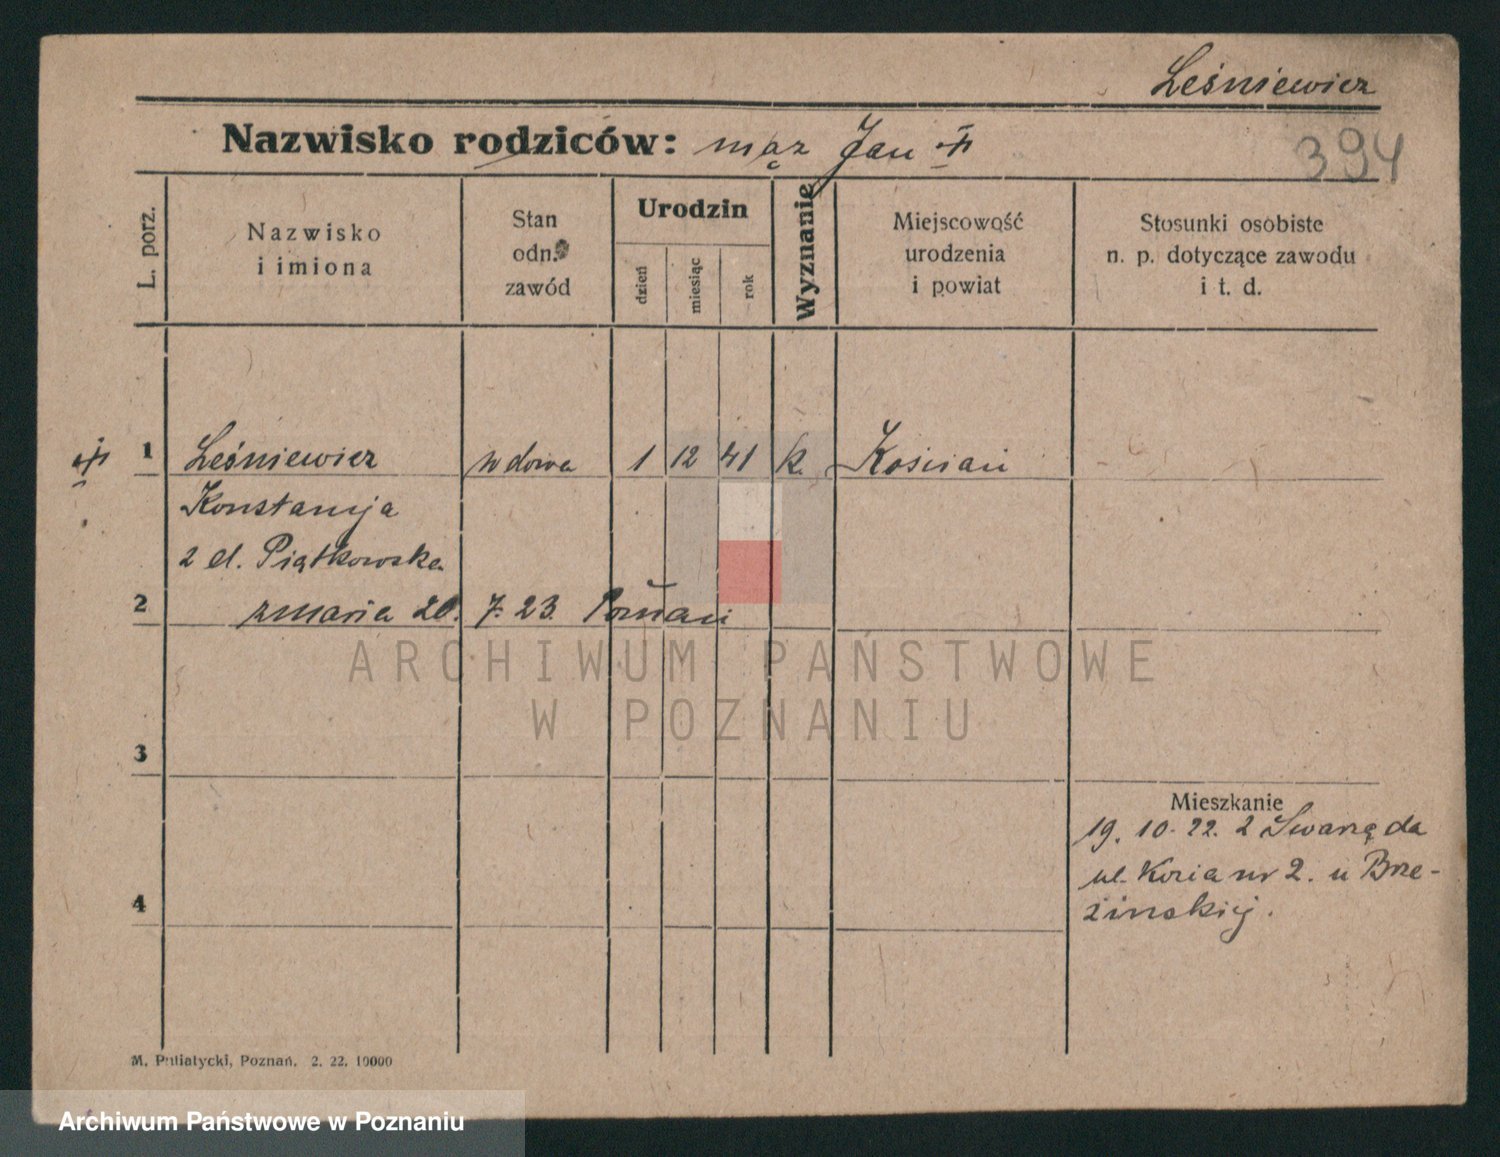 Leśniewicz
Nazwisko rodziców: mąż Jan
394
L. porz.
Nazwisko
i imiona
Stan
odn.
zawód
Urodzin
dzień
miesiąc
rok
Wyznanie
Miejscowość
urodzenia
i powiat
Stosunki osobiste
n. p. dotyczące zawodu
i t. d.
1 Leśniewicz wdowa 1 12 41 k. Kościań
Konstancja
z d. Piątkowska
2 zmarła 20. 7. 23. Poznań
ARCHIWUM PAŃSTWOWE
W POZNANIU
3
Mieszkanie
19. 10. 22. z Swarzędza
ul. Kozia nr 2. u Brze-
zińskiej.
4
M. Putiatycki, Poznań. 2. 22. 10000
Archiwum Państwowe w Poznaniu